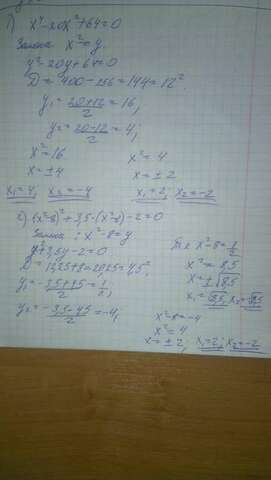 1) x⁴-20x²+64=0
Замена x²=y.
y²-20y+64=0
D = 400-256=144=12²
y₁=(20+12)/2=16,
y₂=(20-12)/2=4;
x²=16
x=±4
x₁=4; x₂=-4
x²=4
x=±2
x₁=2; x₂=-2
2) (x²-8)²+3,5·(x²-8)-2=0
Замена: x²-8=y
y²+3,5y-2=0
D=12,25+8=20,25=4,5²,
y₁=(-3,5+4,5)/2=1/2,
y₂=(-3,5-4,5)/2=-4,
x²-8=1/2
x²=8,5
x=±√8,5
x₁=√8,5; x₂=-√8,5
x²-8=-4
x²=4
x=±2; x₁=2; x₂=-2